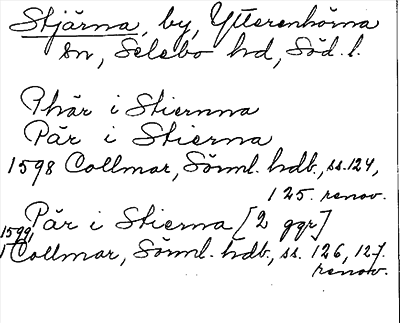 Stjärna, by, Ytterenhörna
sn, Selebo hd, Söd. l.
Phär i Stiernna
Pär i Stierna
1598 Collmar, Sörml. hdb., ss. 124,
125. renov.
Pär i Stierna [2 ggr]
1599, Collmar, Sörml. hdb., ss. 126, 127.
renov.